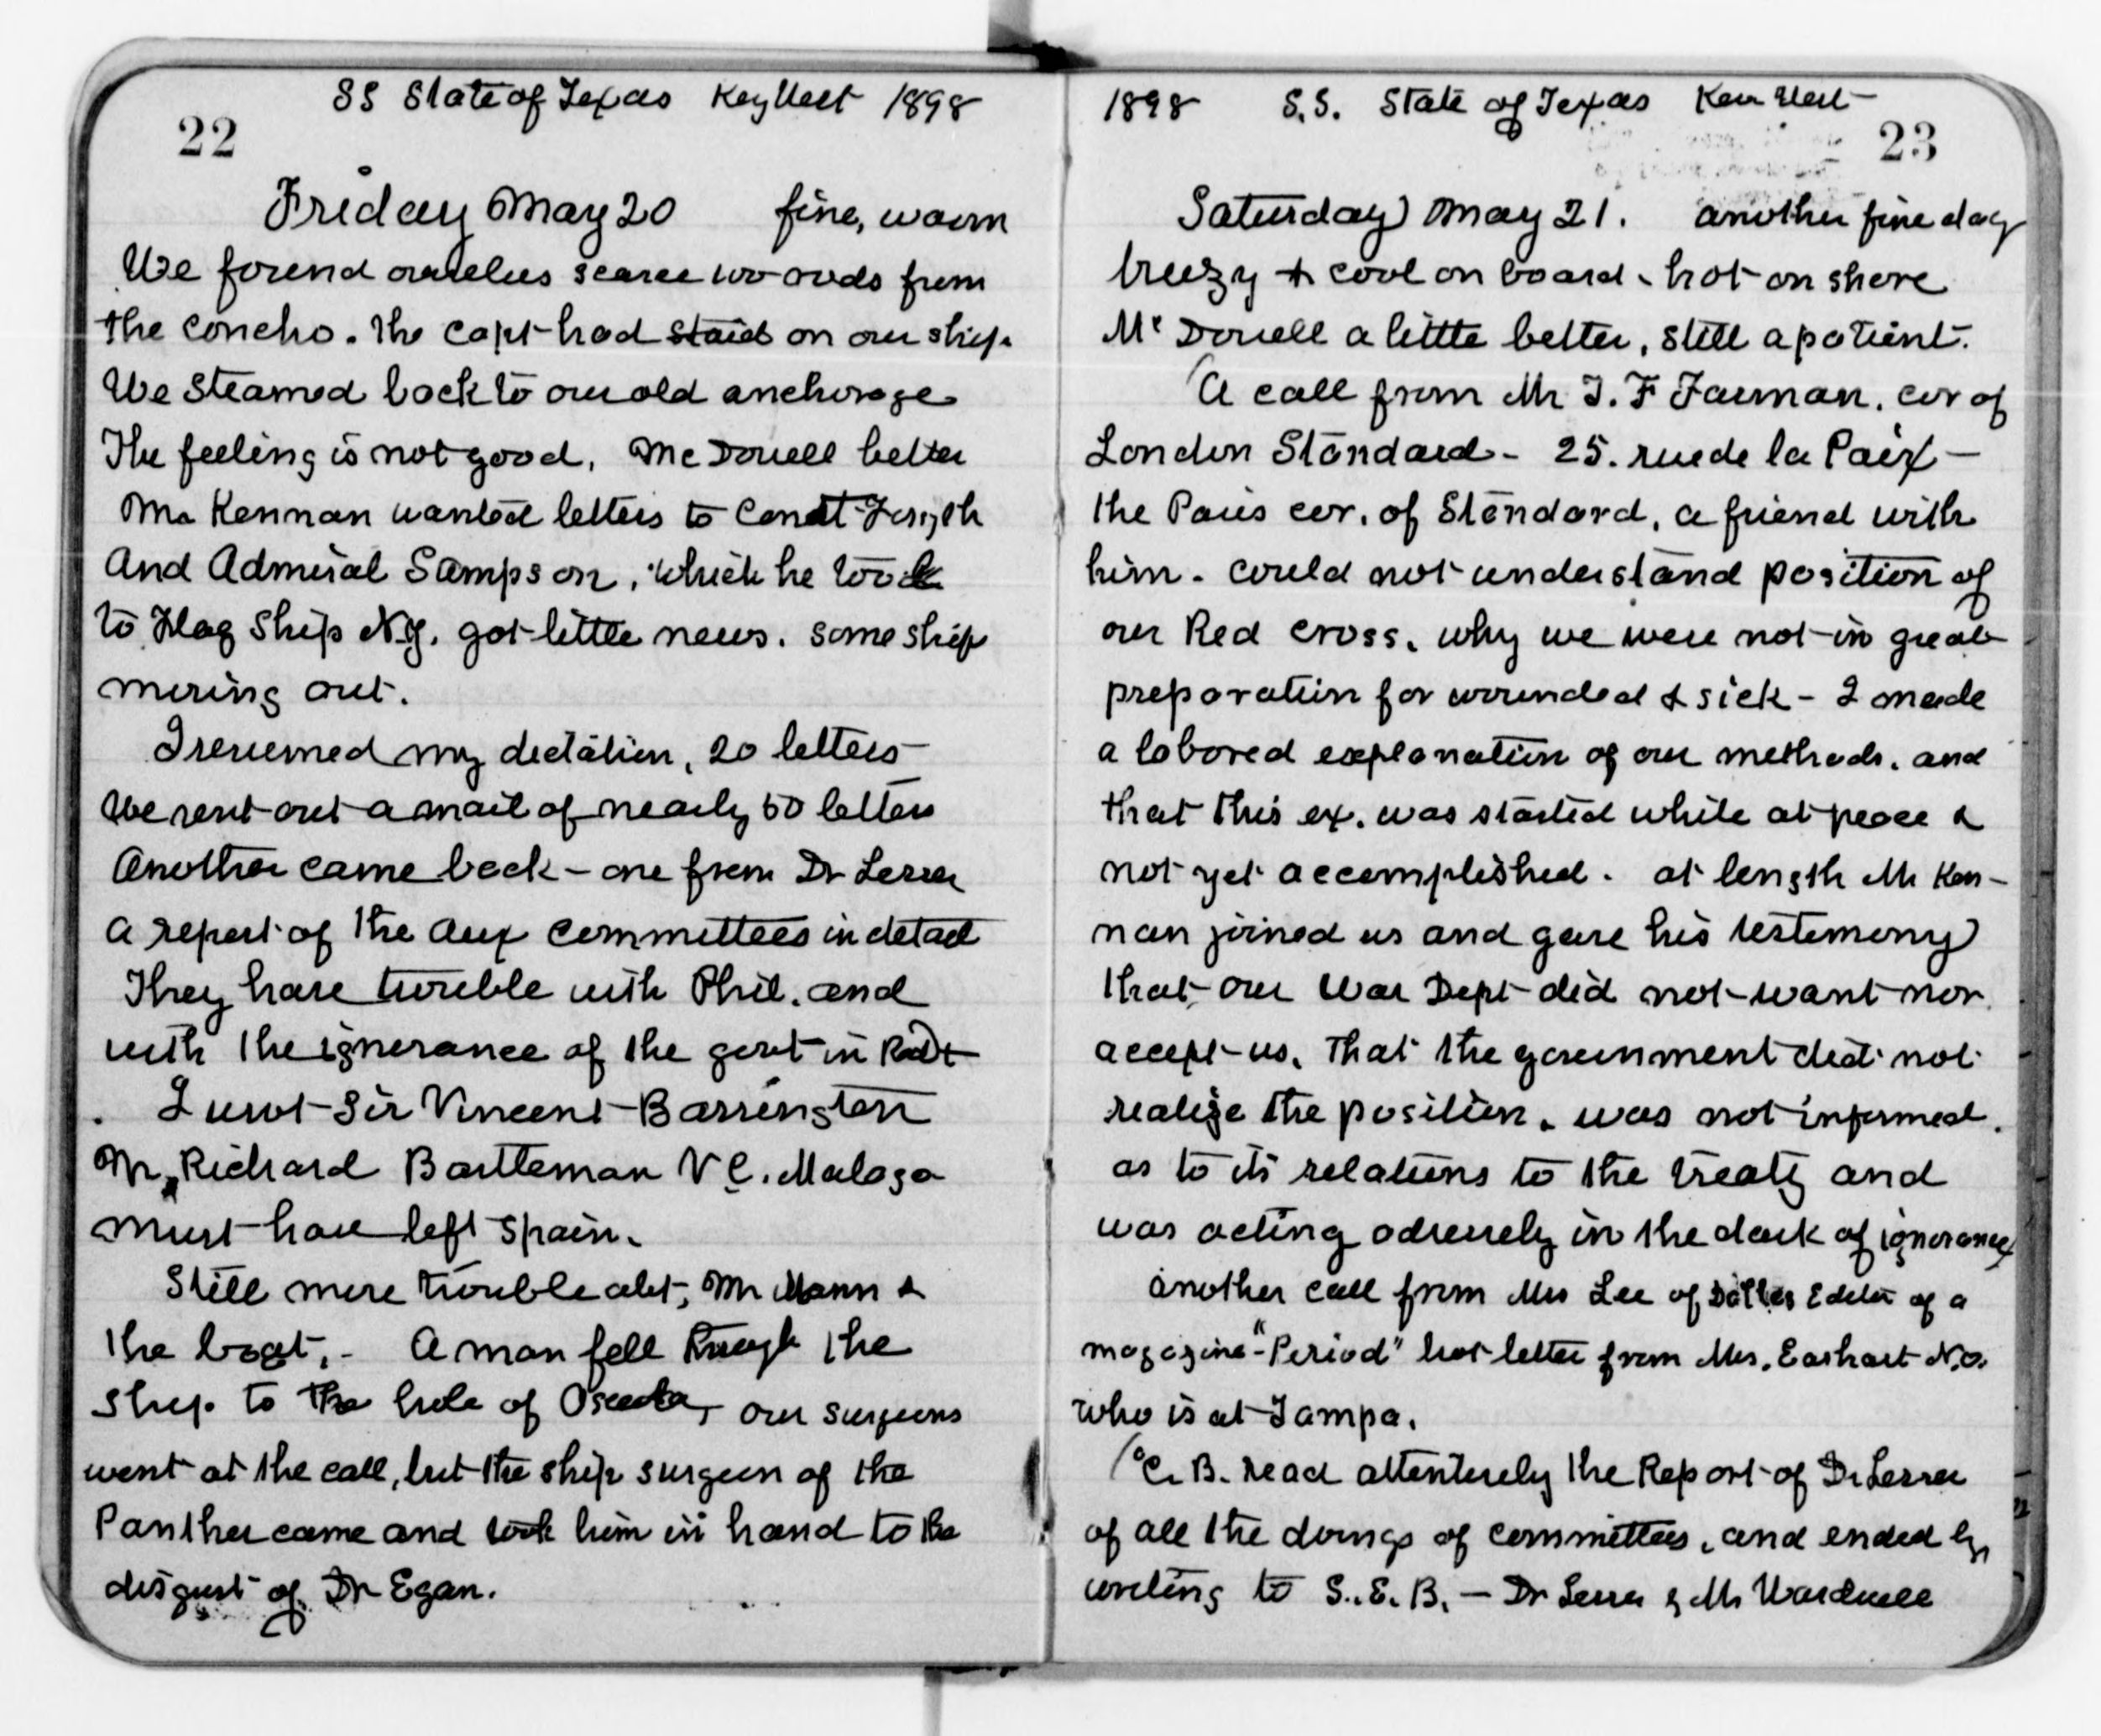 SS State of Texas Key West 1898
22
Friday May 20 fine, warm
We found ourselves scarce 100 from
the Concho. The Capt had staid on our ship.
We steamed back to our old anchorage
The feeling is not good, McDowell better
Mr Kennan wanted letters to Comdt Forsyth
And Admiral Sampson, which he took
to Flag Ship N.Y. got little news. some ship
moving out.
I resumed my dictation, 20 letters
We sent out a mail of nearly 50 letters
Another came back - one from Dr Lesser
a report of the Aux Committees in detail
They have trouble with Phil. and
with the ignorance of the govt in
I wrot Sir Vincent Barrington
Mr Richard Bartleman V C. Malaga
must have left Spain.
Still more trouble abt, Mr Mann &
the boat, - A man fell through the
ship to the hole of Osceola, our surgeons
went at the call, but the ship surgeon of the
Panther came and took him in hand to the
disgust of Dr Egan.
1898 S.S. State of Texas Key West
23
Saturday May 21. another fine day
breezy & cool on board - hot on shore
McDowell a little better, still a patient.
A call from Mr J. F Farman. cor of
London Standard - 25. rue de la Paix -
the Paris cor. of Standard, a friend with
him. could not understand position of
our Red Cross, why we were not in great
preparation for wounded & sick - I made
a labored explanation of our methods. and
that this ex. was started while at peace &
not yet accomplished. at length Mr Ken-
nan joined us and gave his testimony
that our War Dept did not want nor
accept us. That the government did not
realize the position, was not informed.
as to its relations to the treaty and
was acting adversely in the dark of ignorance
another call from Mrs Lee of Dallas Editor of a
magazine - "Period" hot letter from Mrs. Earhart N.O.
who is at Tampa.
C. B. read attentively the Report of Dr Lesser
of all the doings of committees, and ended by
writing to S. E. B. - Dr Lesser & Mr Wardwell